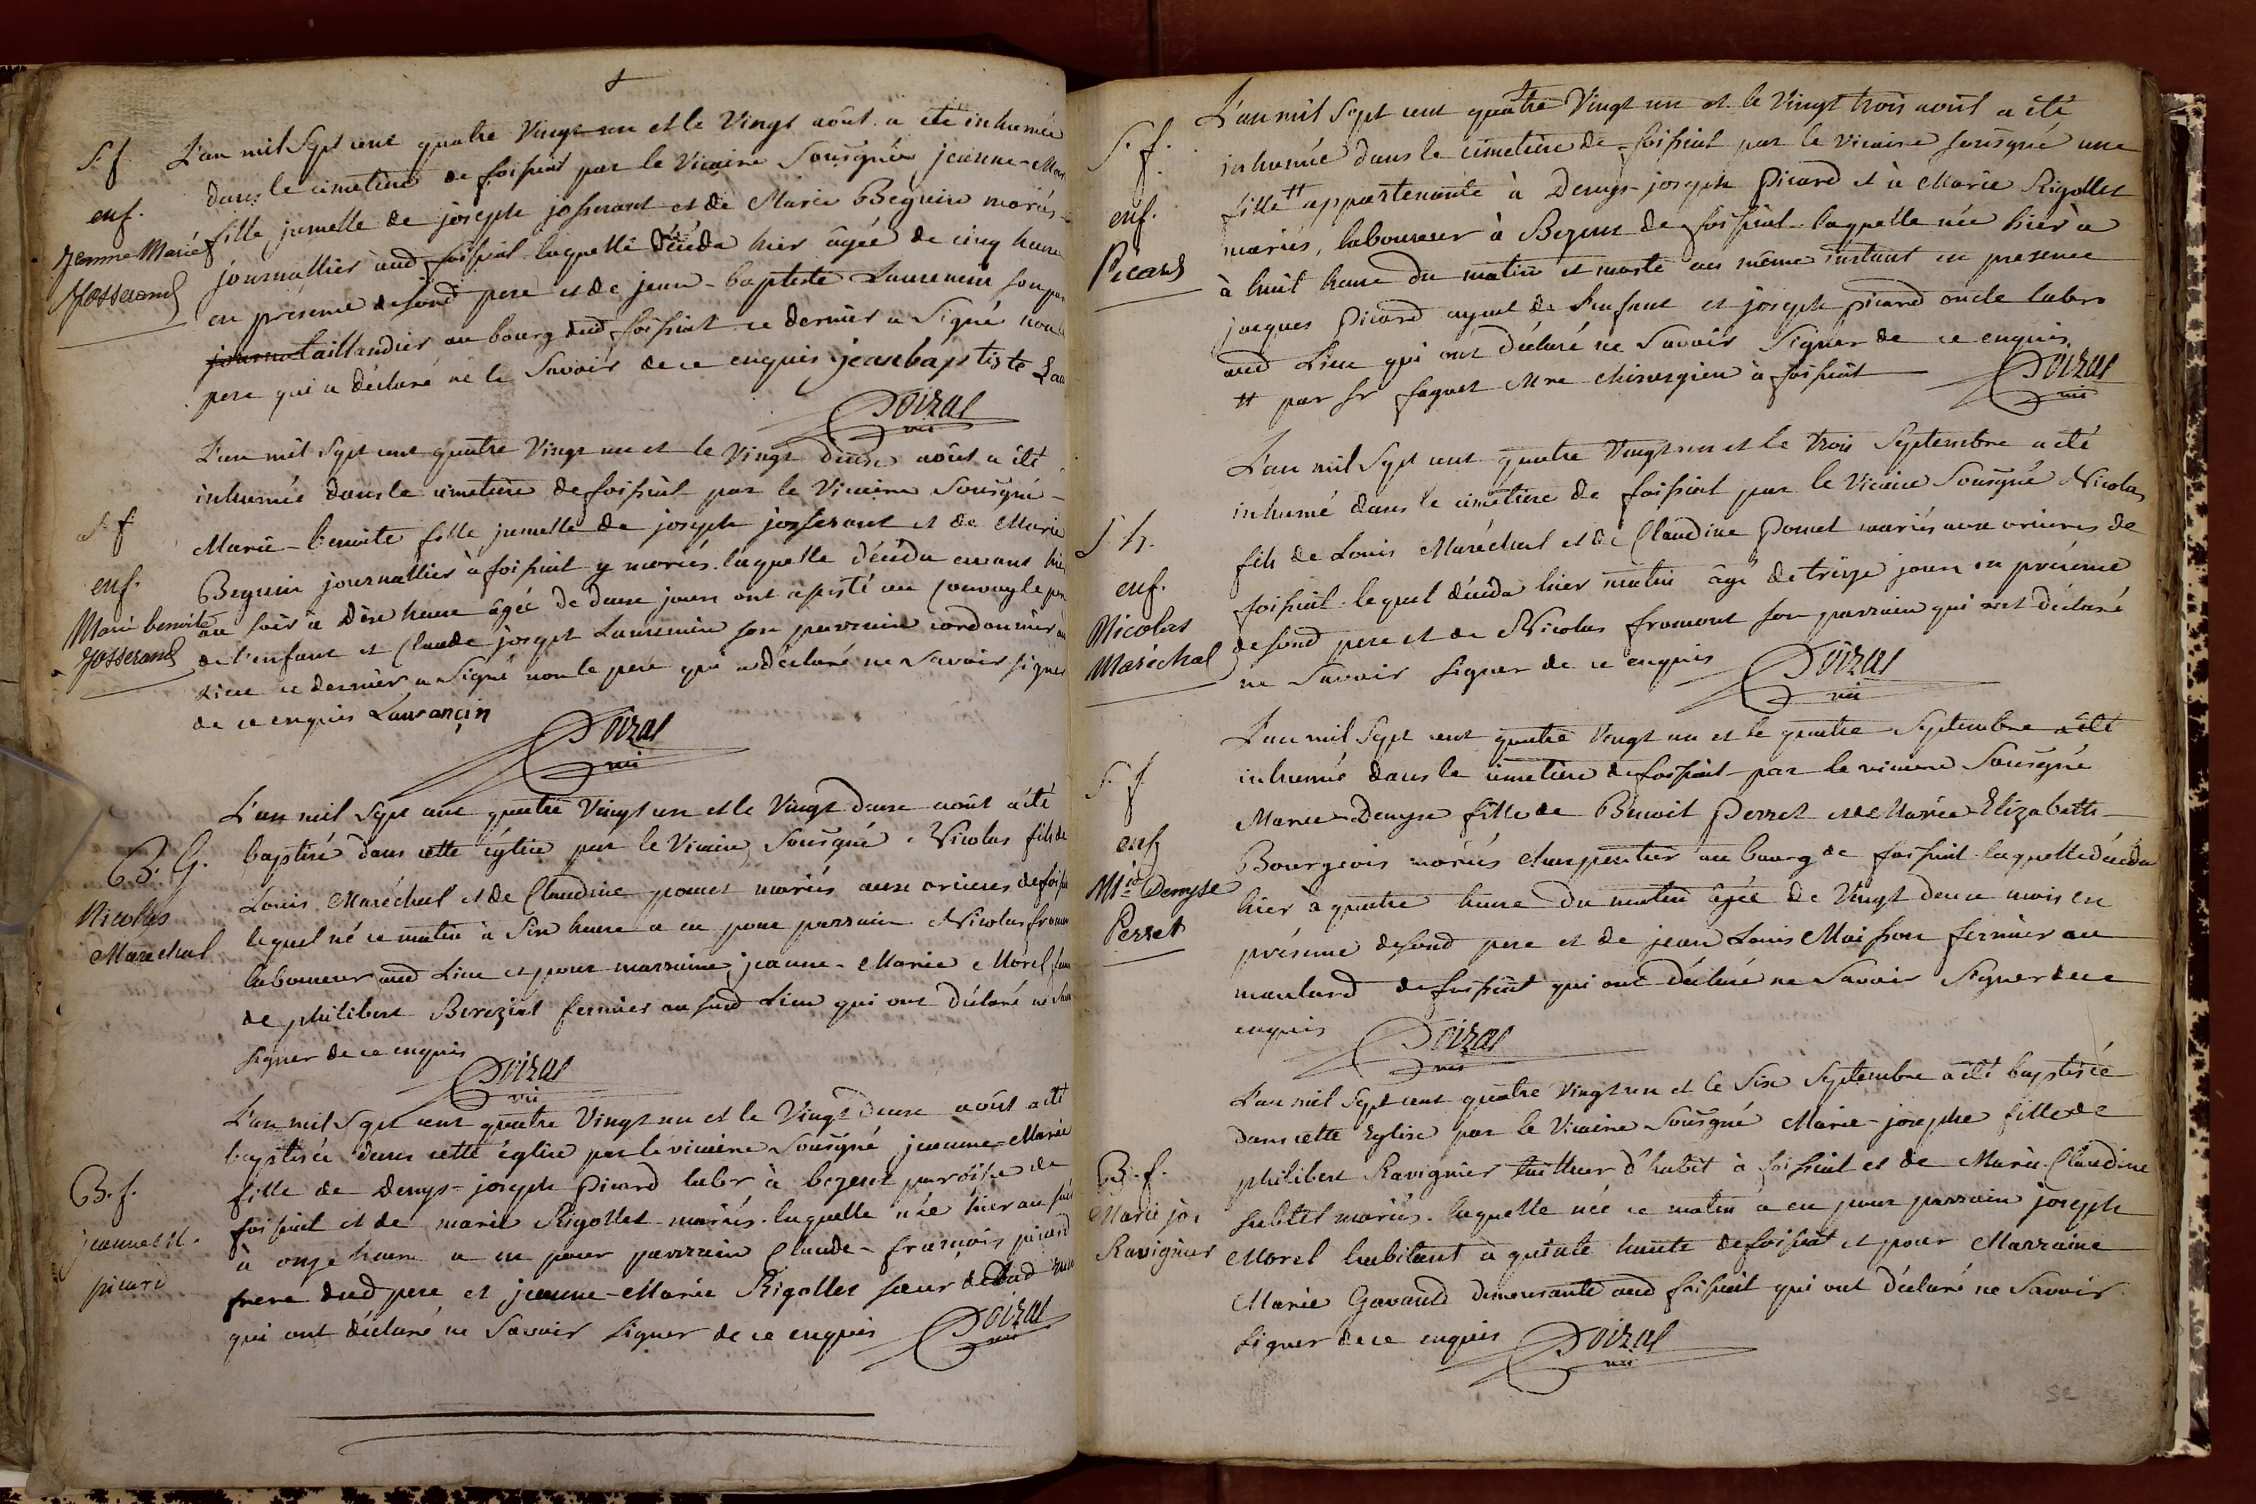 S. f
enf.
Jeanne Marie
Josserand
L'an mil Sept cent quatre Vingt un et le Vingt aôut a été inhumée
dans le cimetiere de foissiat par le Vicaire Sousigné jeanne-Mar
fille jumelle de joseph josserant et de Marie Beguin mariés
journallier aud foissiat laquelle décéda hier âgée de cinq heure
en présence desond pere et de jean-baptiste Laurencin son par
taillandier au bourg dud foissiat ce dernier a Signé non le
pere qui a déclaré ne le Savoir de ce enquis jean baptiste Lau
Doizat
vic
S. f
enf.
Marie benoite
Josserand
L'an mil Sept cent quatre Vingt un et le Vingt deux aôut a été
inhumée dans le cimetiere de foissiat par le Vicaire Sousigné
Marie-benoite fille jumelle de joseph josserant et de Marie
Beguin journallier à foissiat y mariés. laquelle décéda
au soir à dix heure âgée de deux jours ont assisté au Convoy le pere
de l'enfant et Claude joseph Laurencin son parrain cordonnier au
Lieu ce dernier a Signé non le pere qui a déclaré ne Savoir signer
de ce enquis Laurançin
Doizat
vic
B. G.
Nicolas
Maréchal
L'an mil Sept cent quatre Vingt un et le Vingt deux aôut a été
baptisé dans cette église par le Vicaire Sousigné Nicolas fils de
Louis Maréchal et de Claudine pomet mariés aux orieres de foissia
lequel né ce matin à Six heure a eu pour parrain Nicolas fromon
laboureur aud Lieu et pour marraine jeanne-Marie Morel
de philibert Berezial fermier au sud Lieu qui ont déclaré ne Savoi
signer de ce enquis
Doizat
vic
B. f.
jeanne M.
picard
L'an mil Sept cent quatre Vingt un et le Vingt deux aôut a été
baptisée dans cette église par le vicaire Sousigné jeanne-Marie
fille de Denys-joseph Picard labr à bezent paroisse de
foissiat et de marie Rigollet mariés. laquelle née hier au soir
à onze heure a eu pour parrain Claude-françois picard
frere dud pere et jeanne-Marie Rigollet sœur de lad mere
qui ont déclaré ne Savoir signer de ce enquis
Doizat
vic
S. f.
enf.
Picard
L'an mil Sept cent quatre Vingt un et le Vingt trois aoút a été
inhumée dans le cimetiere de foissiat par le vicaire sousigné une
fille # appartenante à Denys-joseph Picard et à Marie Rigollet
mariés, laboureur à Bezent de foissiat. laquelle née hier à
à huit heure du matin et morte au même instant en presence
jacques Picard ayeul de l'enfant et joseph picard oncle labrs
aud Lieu qui ont déclaré ne Savoir Signer de ce enquis
# par Sr faguet Mre chirurgien à foissiat
Doizat
vic
S h.
enf.
Nicolas
Maréchal
L'an mil Sept cent quatre Vingt un et le trois Septembre a été
inhumé dans le cimetiere de foissiat par le Vicaire Sousigné Nicolas
fils de Louis Maréchal et de Claudine Pomet mariés aux orieres de
foissiat. lequel décéda hier matin âgé de treize jours en présence
desond pere et de Nicolas fromont son parrain qui ont déclaré
ne Savoir signer de ce enquis
Doizat
vic
S f
enf
Mie Denyse
Perret
L'an mil Sept cent quatre Vingt un et le quatre Septembre a été
inhumé dans le cimetiere de foissiat par le vicaire Sousigné
Marie-Denyse fille de Benoit Perret et de Marie-Elizabeth
Bourgeois mariés charpentier au bourg de foissiat. laquelle décéda
hier à quatre heure du matin âgée de Vingt deux mois en
présence desond pere et de jean Louis Moisson fermier au
montard de foissiat qui ont déclaré ne Savoir Signer de ce
enquis
Doizat
vic
B. f.
Marie jos
Ravignier
L'an mil Sept cent quatre Vingt un et le Six Septembre a été baptisée
dans cette Eglise par le Vicaire Sousigné Marie-josephe fille de
philibert Ravignier tailleur d'habit à foissiat et de Marie-Claudine
subtil mariés. laquelle née ce matin a eu pour parrain joseph
Morel habitant à haute de foissiat et pour Marraine
Marie Gavand demeurante aud foissiat qui ont déclaré ne Savoir
signer de ce enquis
Doizat
vic